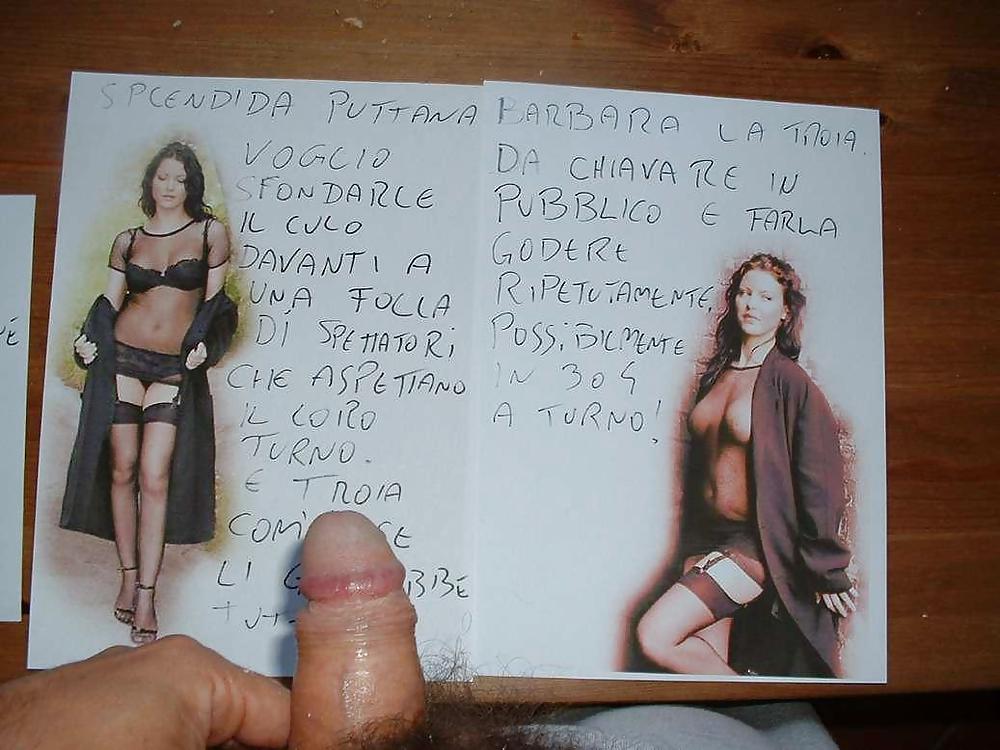 SPLENDIDA PUTTANA
VOGLIO
SFONDARLE
IL CULO
DAVANTI A
UNA FOLLA
DI SPETTATORI
CHE ASPETTANO
IL LORO
TURNO.
E TROIA
LI
BARBARA LA TROIA.
DA CHIAVARE IN
PUBBLICO E FARLA
GODERE
RIPETUTAMENTE,
POSSIBILMENTE
IN 3 O 4
A TURNO!